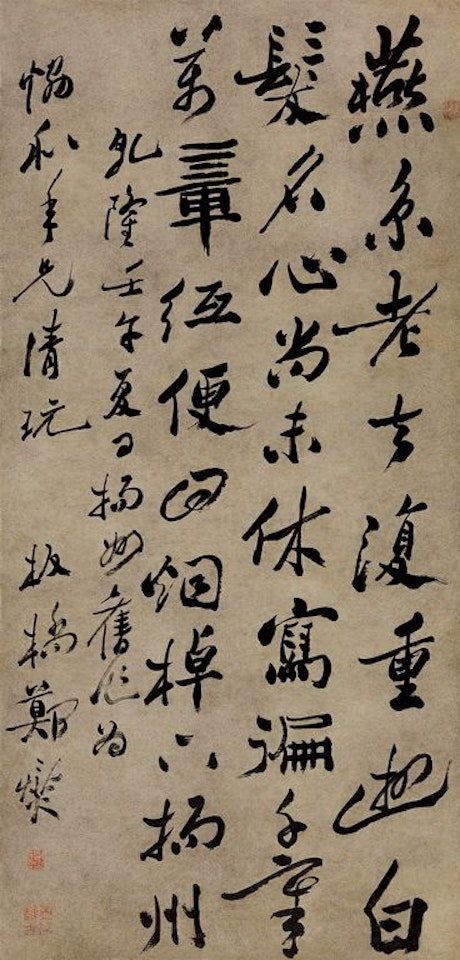 燕京老去復重逰白
髮名心尚未休寫遍千
萬便回烟棹下揚州
乾隆壬午夏日揚州舊作為
恊和年兄清玩 板橋鄭燮